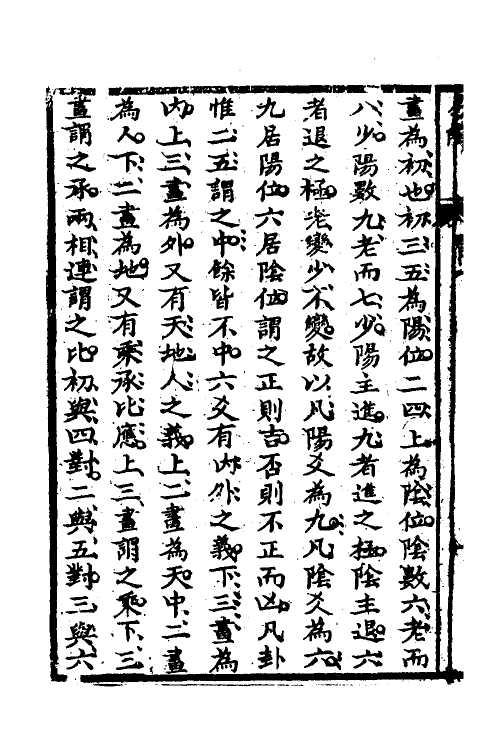 畫爲初也初三五爲陽位二四上爲陰位陰數六老而
八少陽數九老而七少陽主進九者進之極陰主退六
者退之極老變少不變故以凡陽爻爲九凡陰爻爲六
九居陽位六居陰位謂之正則吉否則不正而凶凡卦
惟二五謂之中餘皆不中六爻有内外之義下三畫爲
内上三畫爲外又有天地人之義上二畫爲天中二畫
爲人下二畫爲地又有乘承比應上三畫謂之乘下三
畫謂之承兩相連謂之比初與四對二與五對三與六